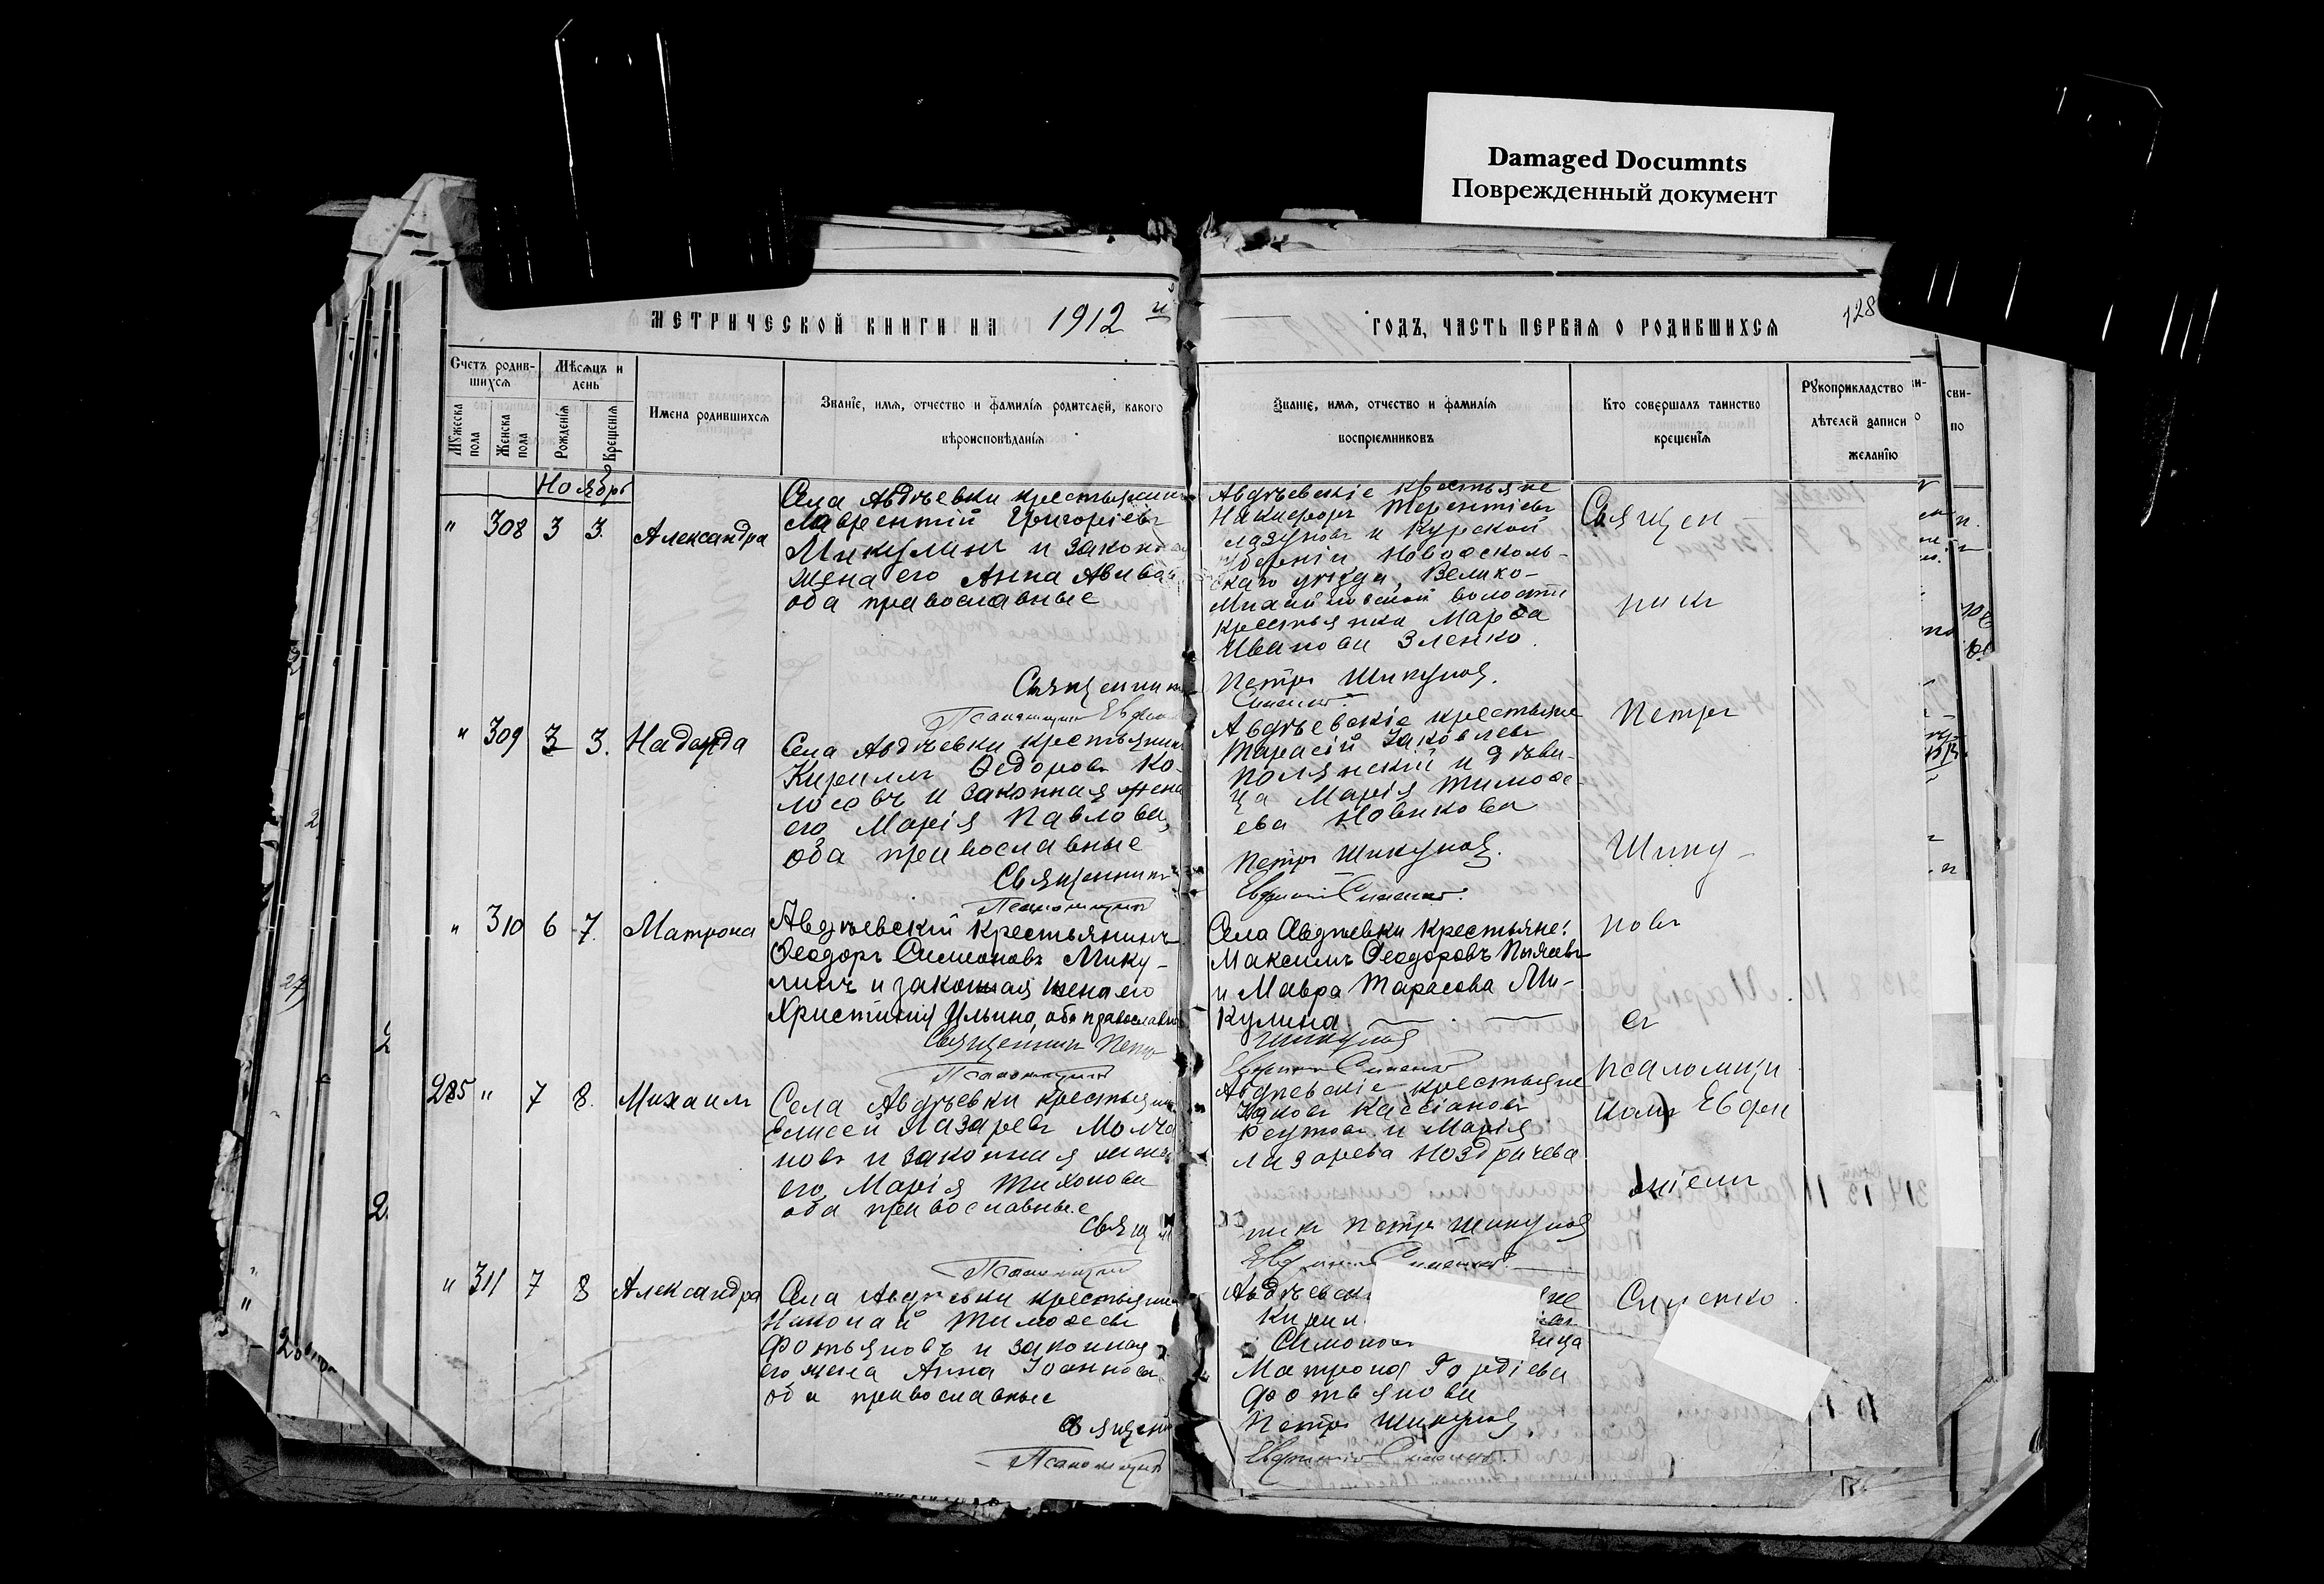 Damaged Documnts
Поврежденный документ
МЕТРИЧЕСКОЙ КНИГИ НА 1912 й
ГОДЪ, ЧАСТЬ ПЕРВАЯ О РОДИВШИХСЯ
128
Счетъ родив-
шихся
Мѣсяцъ и
день
Мужеска
пола
Женска
пола
Рожденія
Крещенія
Имена родившихся
Званіе, имя, отчество и фамилія родителей, какого
вѣроисповѣданія
Званіе, имя, отчество и фамилія
воспріемниковъ
Кто совершалъ таинство
крещенія
Рукоприкладство
дѣтелей записи
желанію
сви-
по
Ноябрь
" 308 3 3. Александра
Села Авдѣевки крестьянинъ
Лаврентій Григоріевъ
Микулинъ и законная
жена его Анна
оба православные
Священникъ
Псаломщикъ
Авдѣевскіе крестьяне
Никифоръ Терентіевъ
Лазуновъ и Курской
губерніи Новооскол-
скаго уѣзда, Велико-
Михайловской волости
крестьянка Марфа
Иванова Зленко.
Петръ Шикуновъ.
Сименко.
" 309 3 3. Надежда
Села Авдѣевки крестьянинъ
Кириллъ Ѳедоровъ Ко-
лосовъ и законная жена
его Марія Павлова,
оба православные
Священникъ
Псаломщикъ
Авдѣевскіе крестьяне
Тарасій Іаковлевъ
Полянскій и дѣви-
ца Марія Тимоѳе
ева Новикова
Петръ Шикуновъ.
Евфимій Сименко.
" 310 6 7. Матрона
Авдѣевскій крестьянинъ
Ѳеодоръ Симеоновъ Мику-
линъ и законная жена его
Христинія Ильина, оба православные
Священникъ Петръ
Псаломщикъ
Села Авдѣевки крестьяне:
Максимъ Ѳеодоровъ
и Мавра Тарасова Ми-
кулина.
Шикуновъ
Сименко
285 " 7 8. Михаилъ
Села Авдѣевки крестьянинъ
Елисей Лазаревъ Молча
новъ и законная жена
его Марія Тихонова
оба православные
Свящ
Псаломщикъ
Авдѣевскіе крестьяне
Іаковъ Кассіановъ
Реутовъ и Марія
Лазарева Ноздрачева
никъ Петръ Шикуновъ
Сименко.
" 311 7 8 Александра
Села Авдѣевки крестьянинъ
Николай Тимоѳеевъ
Фотьяновъ и законная
его жена Анна Іоаннова
оба православные
Священ
Псаломщикъ
Симонов
Матрона Гордіева
Фотьянова
Петръ Шикуновъ
Сименко.
Священ
никъ
Петръ
Шику-
новъ
съ
псаломщи
комъ Евфи
міемъ
Сименко